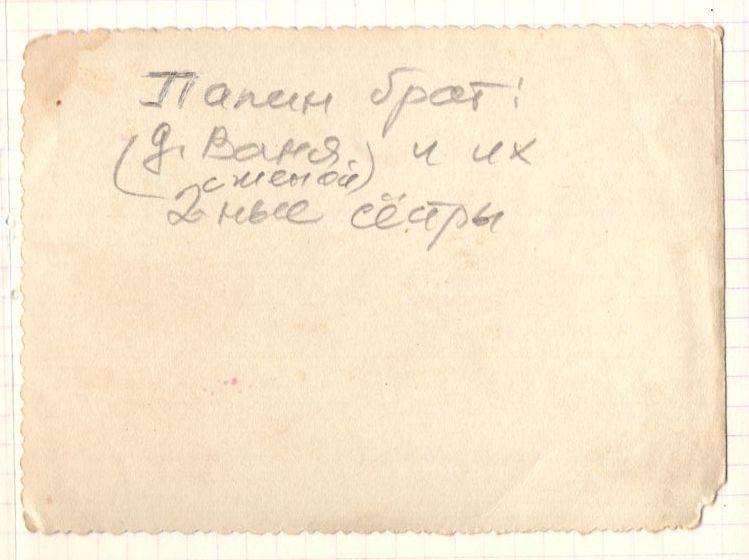 Папин брат:
(д. Ваня) и их
с женой)
2ные сёстры